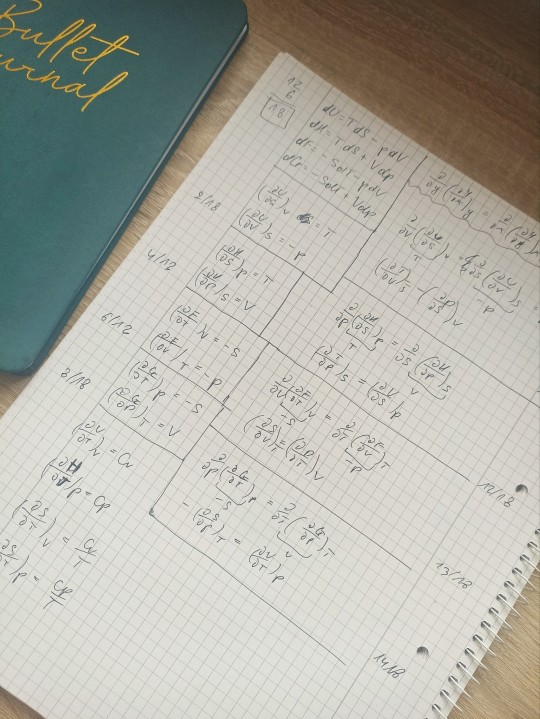 Bullet
Journal
12
6
18
dU = TdS - pdV
dH = TdS + Vdp
dF = -SdT - pdV
dG = -SdT + Vdp
2/18
(∂U/∂S)_V = T
(∂U/∂V)_S = -p
4/18
(∂H/∂S)_p = T
(∂H/∂p)_S = V
6/18
(∂F/∂T)_V = -S
(∂F/∂V)_T = -p
8/18
(∂G/∂T)_p = -S
(∂G/∂p)_T = V
(∂U/∂T)_V = C_V
(∂H/∂T)_p = C_p
(∂S/∂T)_V = C_V/T
(∂S/∂T)_p = C_p/T
∂/∂V (∂U/∂S)_V = ∂/∂S (∂U/∂V)_S
T -p
(∂T/∂V)_S = -(∂p/∂S)_V
∂/∂p (∂H/∂S)_p = ∂/∂S (∂H/∂p)_S
T V
(∂T/∂p)_S = (∂V/∂S)_p
12/18
∂/∂V (∂F/∂T)_V = ∂/∂T (∂F/∂V)_T
-S -p
(∂S/∂V)_T = (∂p/∂T)_V
13/18
∂/∂p (∂G/∂T)_p = ∂/∂T (∂G/∂p)_T
-S V
-(∂S/∂p)_T = (∂V/∂T)_p
14/18